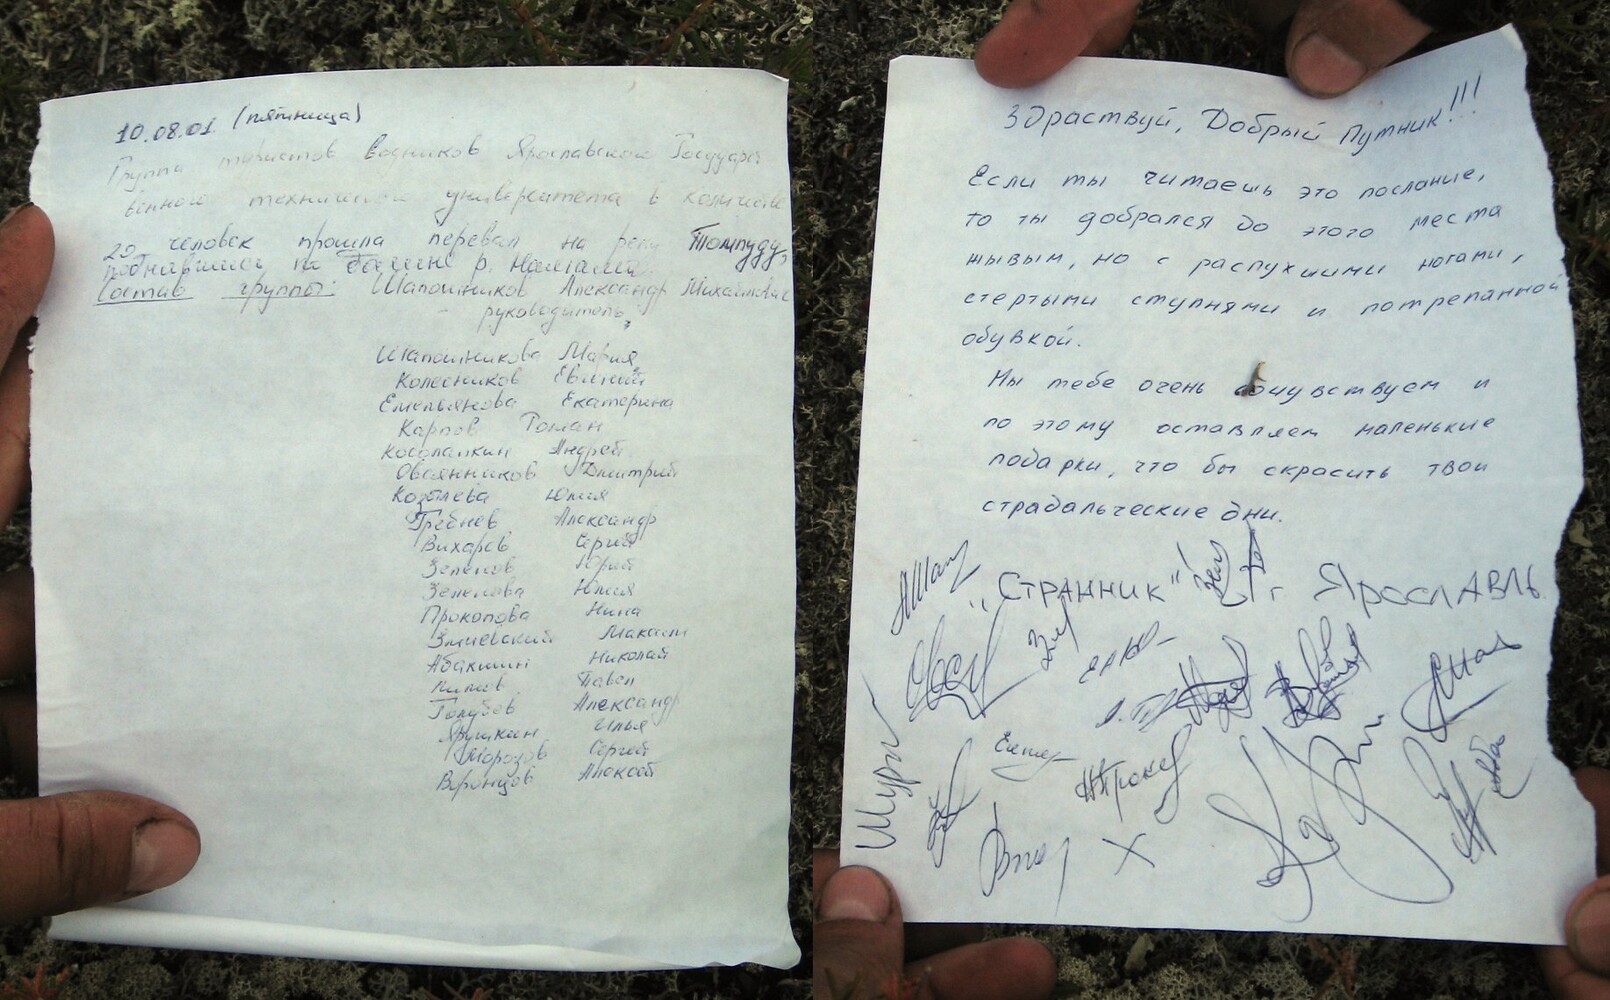 10.08.01. (пятница)
Группа туристов водников Ярославского Государст
венного технического университета в количестве
20 человек прошла перевал на реку Томпуду,
поднявшись по долине р.
Состав группы: Шапошников Александр Михайлович
руководитель,
Шапошникова Мария
Колесников Евгений
Емельянова Екатерина
Карпов Роман
Косолапкин Андрей
Овсянников Дмитрий
Козалева Юлия
Гребнев Александр
Вихарев Сергей
Зеленов Юрий
Зеленова Юлия
Прокопова Нина
Змиевский Максим
Абакшин Николай
Павел
Голубев Александр
Ярушкин Илья
Морозов Сергей
Воронцов Алексей
Здраствуй, Добрый Путник!!!
Если ты читаешь это послание,
то ты добрался до этого места
жывым, но с распухшими ногами,
стертыми ступнями и потрепанной
обувкой.
Мы тебе очень сочувствуем и
по этому оставляем маленькие
подарки, что бы скрасить твои
страдальческие дни.
"СТРАННИК" г. ЯРОСЛАВЛЬ